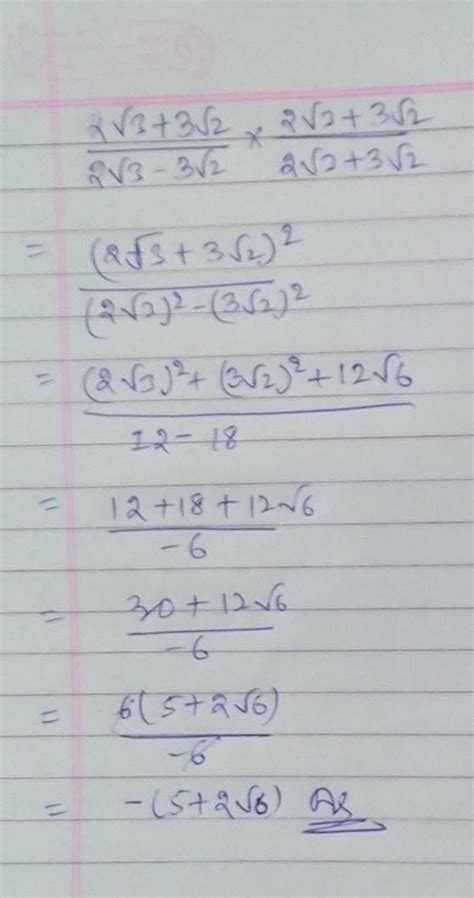 2√3+3√2 / 2√3-3√2 × 2√3+3√2 / 2√3+3√2
= (2√3+3√2)² / (2√3)²-(3√2)²
= (2√3)²+(3√2)²+12√6 / 12-18
= 12+18+12√6 / -6
= 30+12√6 / -6
= 6(5+2√6) / -6
= -(5+2√6) As